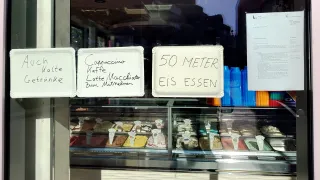 Auch
kalte
Getränke
Cappuccino
Kaffe
Latte Macchiato
zum Mitnehmen
50 METER
EIS ESSEN